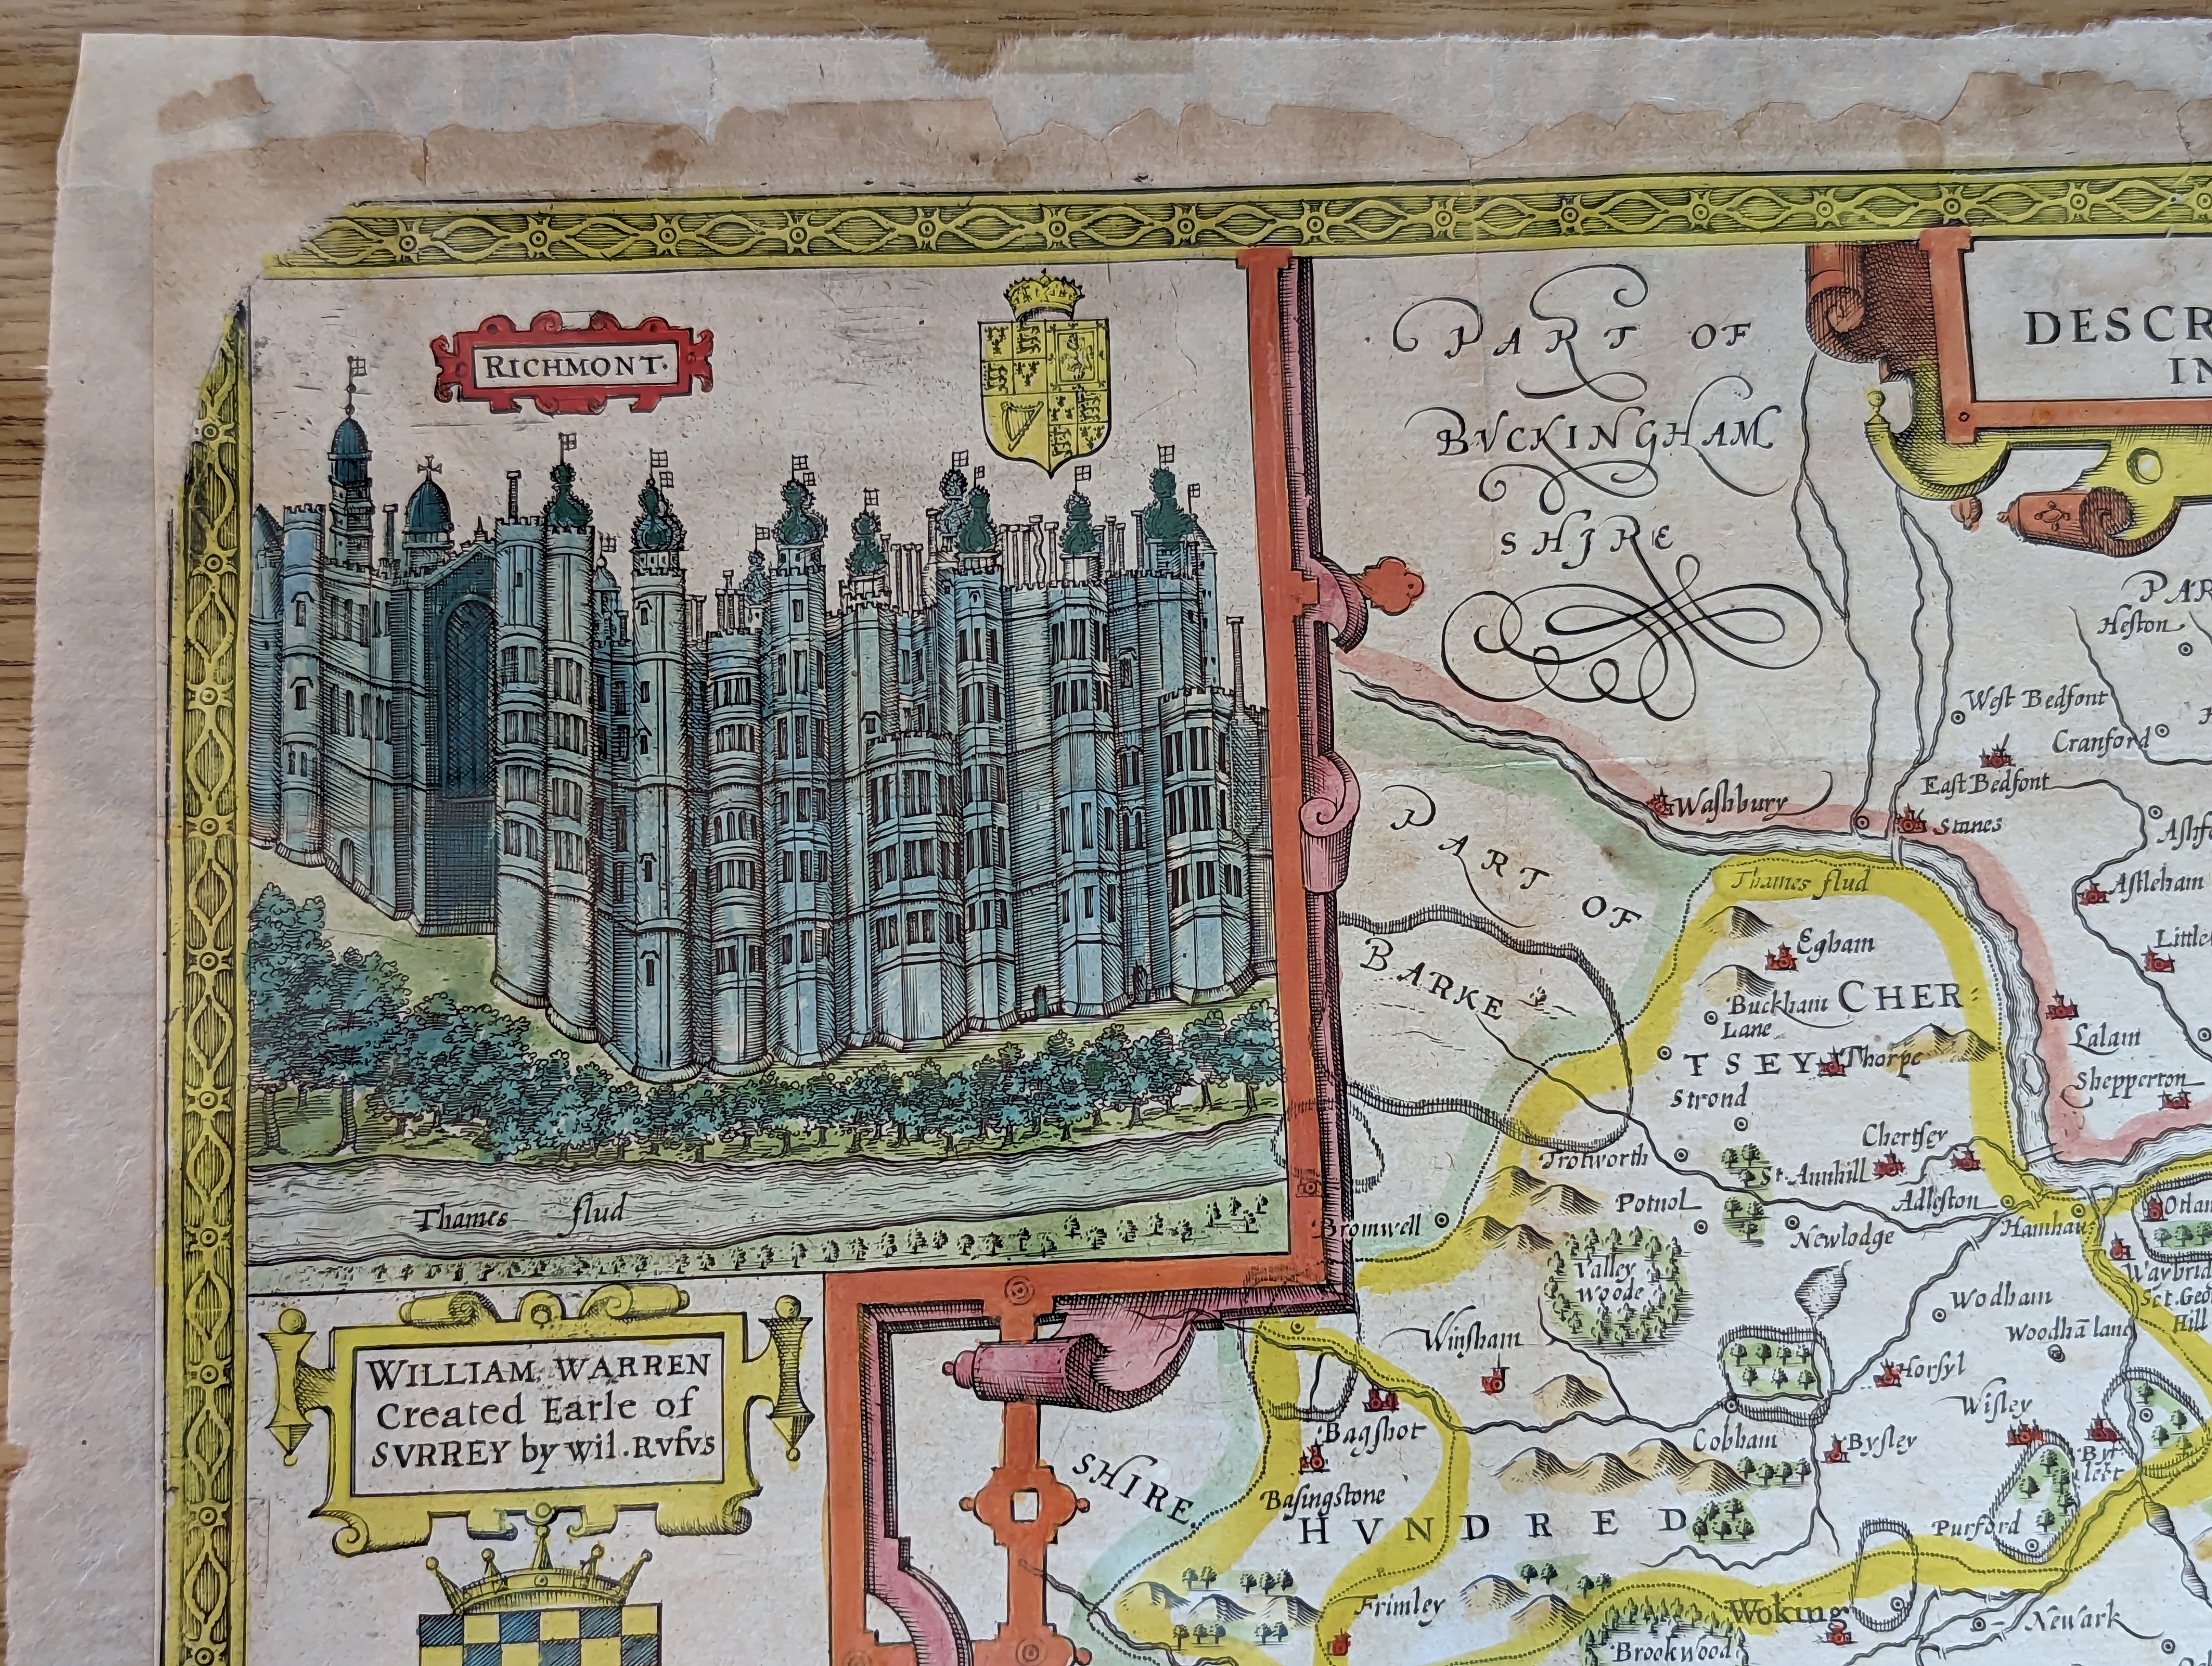 RICHMONT.
PART OF
BVCKINGHAM
SHIRE
DESCR
IN
PAR
Heſton
Weſt Bedfont
Cranford
Eaſt Bedfont
Waſhbury
Stanes
Aſhf
Thames flud
Aſtleham
PART OF
BARKE
Egham
Little
Buckham
Lane
CHER
TSEY
Thorpe
Lalam
Strond
Shepperton
Chertſey
Trotworth
St. Annhill
Thames flud
Potnol
Adleſton
Bromwell
Newlodge
Hamhau
Otlan
Valley
Woode
Waybrid
Sct. Geo
Hill
Wodham
Woodhā land
WILLIAM WARREN
Created Earle of
SVRREY by Wil. RVfVS
Winſham
Horſyl
Wiſley
Bagſhot
Cobham
Byſley
By
leet
SHIRE.
Baſingstone
HVNDRED
Purford
Frimley
Woking
Newark
Brookwood